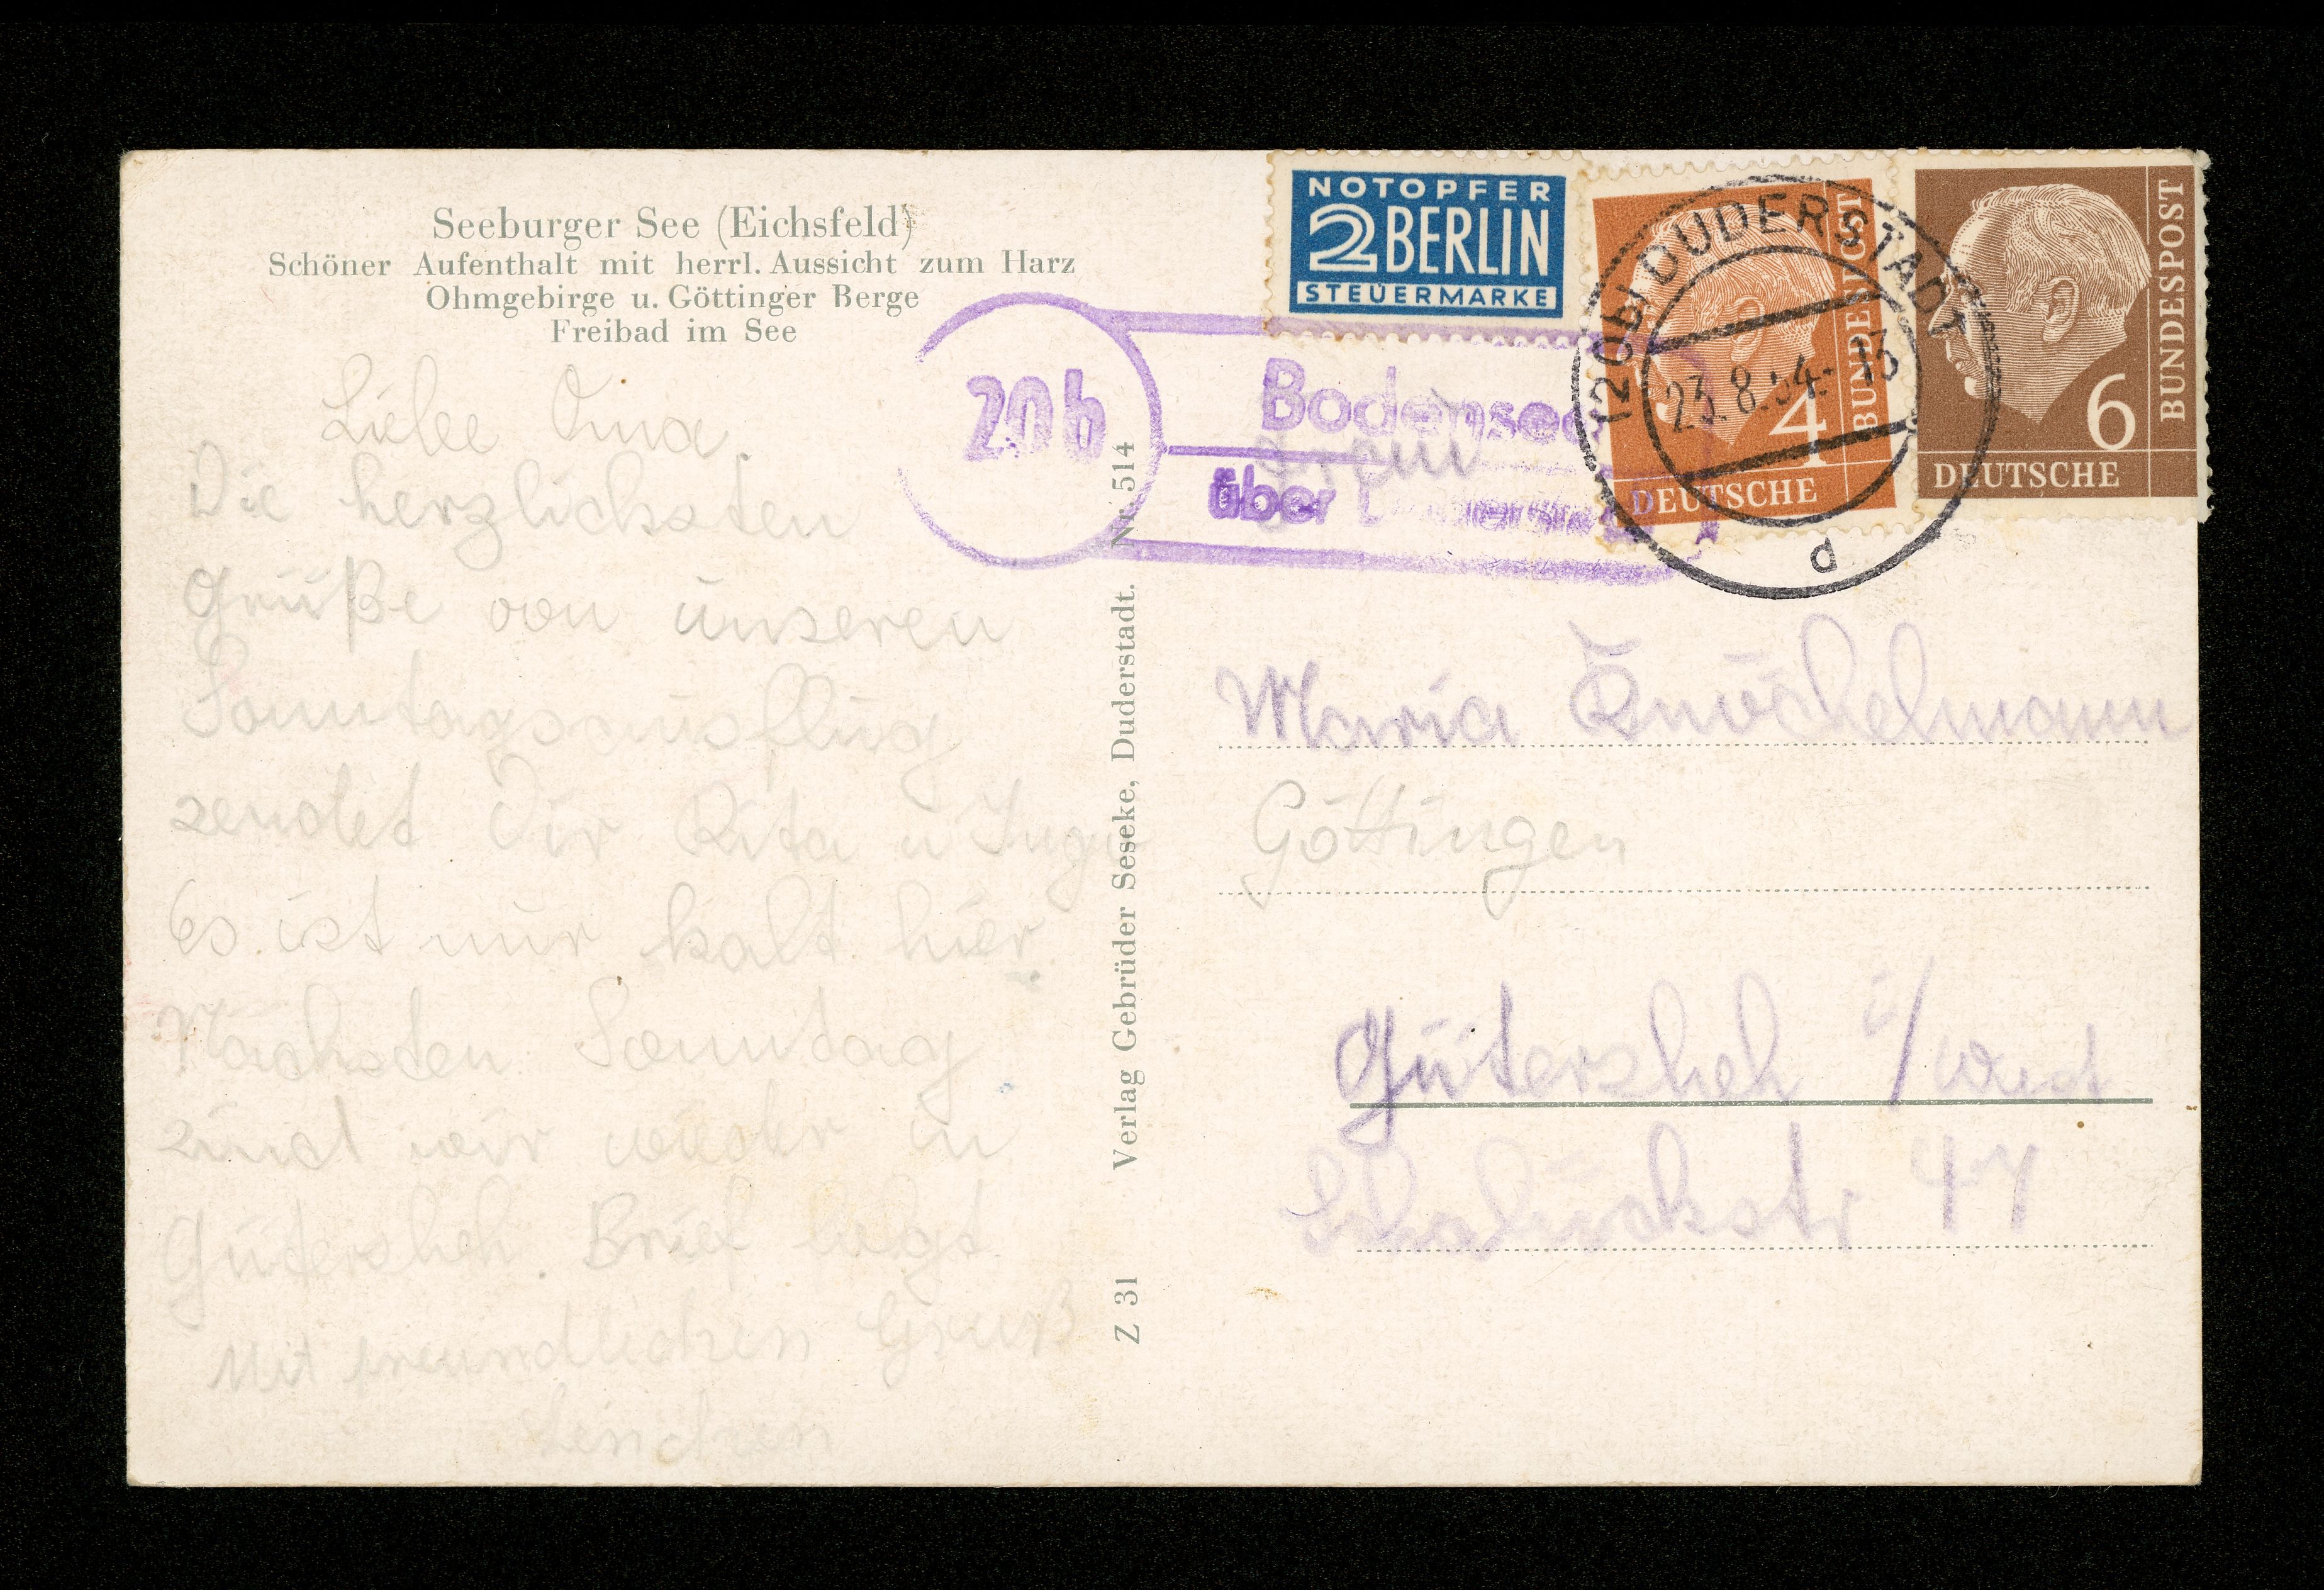 Seeburger See (Eichsfeld)
Schöner Aufenthalt mit herrl. Aussicht zum Harz
Ohmgebirge u. Göttinger Berge
Freibad im See
Liebe Oma.
Die herzlichsten
Grüße von unseren
Sonntagsausflug
sendet Dir Rita u Inge
Es ist nur kalt hier.
Nächsten Sonntag
sind wir wieder in
Gütersloh. Brief folgt.
Mit freundlichen Gruß
Lenchen
Verlag Gebrüder Seseke, Duderstadt. Nr. 514
Z 31
NOTOPFER
2 BERLIN
STEUERMARKE
4
DEUTSCHE
BUNDESPOST
6
DEUTSCHE
BUNDESPOST
(20b) DUDERSTADT
23.8.54.-13
d
20b
Bodensee
über Duderstadt
Frau
Maria Knöchelmann
Göttingen
Gütersloh i/West